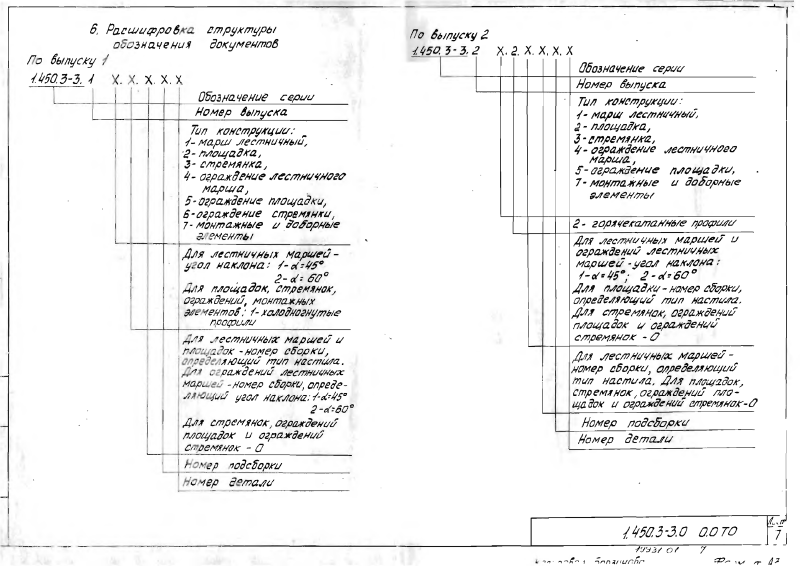 6. Расшифровка структуры
обозначения документов
По выпуску 1
1.450.3-3. 1 X. X. X. X. X
Обозначение серии
Номер выпуска
Тип конструкции:
1- марш лестничный,
2- площадка,
3- стремянка,
4- ограждение лестничного
марша,
5- ограждение площадки,
6- ограждение стремянки,
7- монтажные и доборные
элементы
Для лестничных маршей-
угол наклона: 1-α=45°
2-α=60°
Для площадок, стремянок,
ограждений, монтажных
элементов: 1-холодногнутые
профили
Для лестничных маршей и
площадок - номер сборки,
определяющий тип настила.
Для ограждений лестничных
маршей - номер сборки, опреде-
ляющий угол наклона: 1-α=45°
2-α=60°
Для стремянок, ограждений
площадок и ограждений
стремянок - 0
Номер подсборки
Номер детали
По выпуску 2
1.450.3-3. 2 X. 2. X. X. X. X
Обозначение серии
Номер выпуска
Тип конструкции:
1- марш лестничный,
2- площадка,
3- стремянка,
4- ограждение лестничного
марша,
5- ограждение площадки,
7- монтажные и доборные
элементы
2- горячекатанные профили
Для лестничных маршей и
ограждений лестничных
маршей - угол наклона:
1-α=45°; 2-α=60°
Для площадки - номер сборки,
определяющий тип настила.
Для стремянок, ограждений
площадок и ограждений
стремянок - 0
Для лестничных маршей -
номер сборки, определяющий
тип настила. Для площадок,
стремянок, ограждений пло-
щадок и ограждений стремянок-0
Номер подсборки
Номер детали
1.450.3-3.0 0.0 ТО
Лист
7
19931 01 7